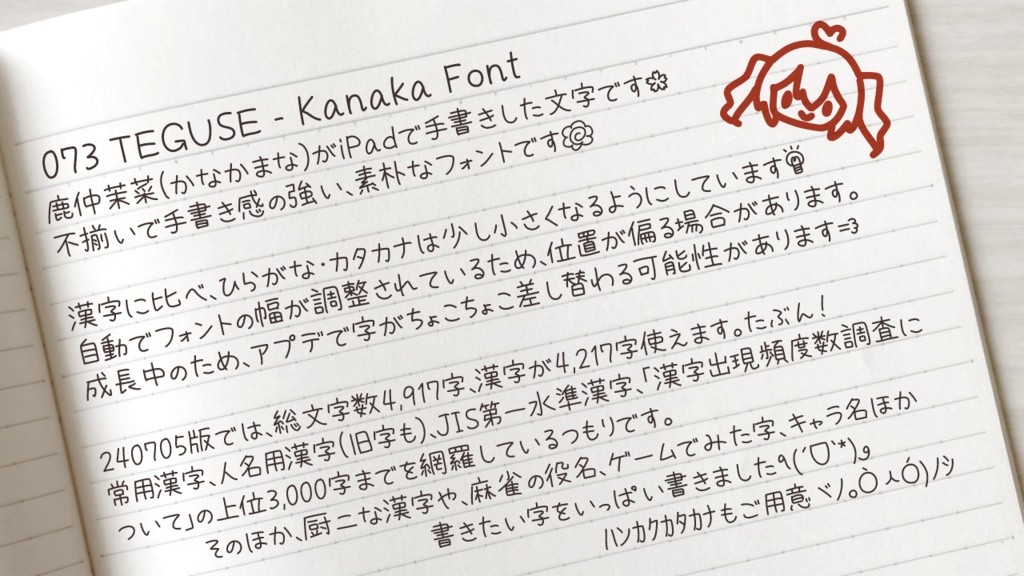 073 TEGUSE - Kanaka Font
鹿仲茉菜(かなかまな)がiPadで手書きした文字です
不揃いで手書き感の強い、素朴なフォントです
漢字に比べ、ひらがな・カタカナは少し小さくなるようにしています
自動でフォントの幅が調整されているため、位置が偏る場合があります。
成長中のため、アプデで字がちょこちょこ差し替わる可能性があります=3
240705版では、総文字数4,917字、漢字が4,217字使えます。たぶん!
常用漢字、人名用漢字(旧字も)、JIS第一水準漢字、「漢字出現頻度数調査に
ついて」の上位3,000字までを網羅しているつもりです。
そのほか、厨二な漢字や、麻雀の役名、ゲームでみた字、キャラ名ほか
書きたい字をいっぱい書きました٩(ˊᗜˋ*)و
ハンカクカタカナもご用意ヾノ。ÒㅅÓ)ノシ